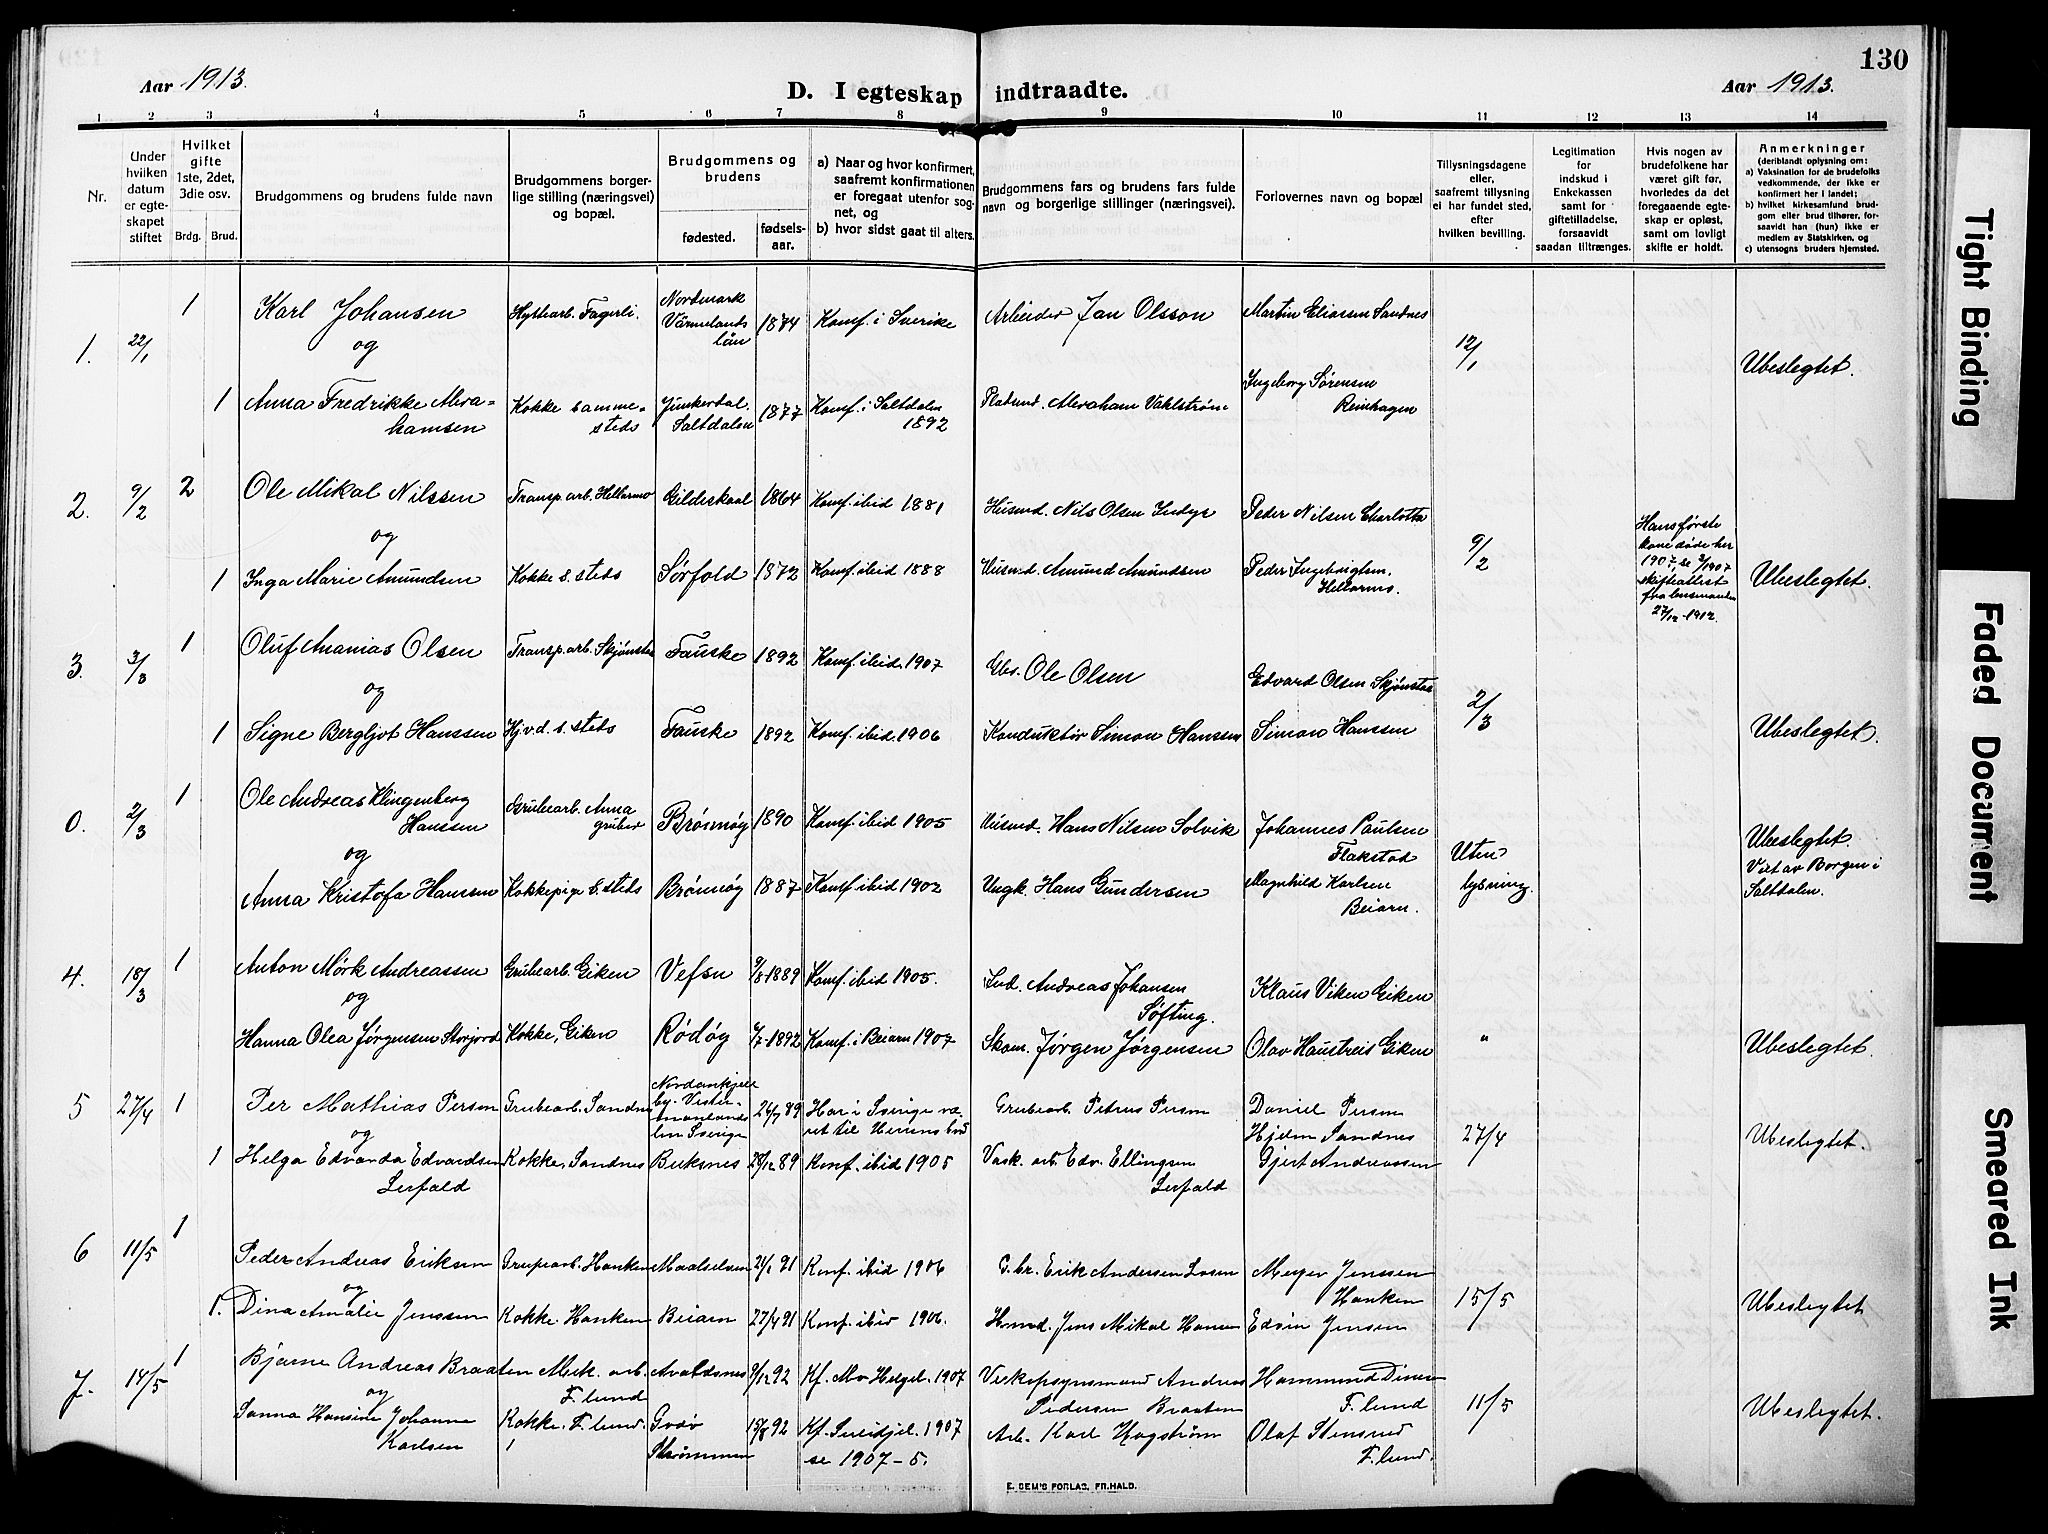 130
Aar 1913.
D. I egteskap indtraadte.
Aar 1913.
1 2 3 4 5 6 7 8 9 10 11 12 13 14
Nr.
Under
hvilken
datum
er egte-
skapet
stiftet
Hvilket
gifte
1ste, 2det,
3die osv.
Brdg. Brud.
Brudgommens og brudens fulde navn
Brudgommens borger-
lige stilling (næringsvei)
og bopæl.
Brudgommens og
brudens
fødested.
fødsels-
aar.
a) Naar og hvor konfirmert,
saafremt konfirmationen
er foregaat utenfor sog-
net, og
b) hvor sidst gaat til alters.
Brudgommens fars og brudens fars fulde
navn og borgerlige stillinger (næringsvei).
Forlovernes navn og bopæl
Tillysningsdagene
eller,
saafremt tillysning
ei har fundet sted,
efter
hvilken bevilling.
Legitimation
for
indskud i
Enkekassen
samt for
giftetilladelse,
forsaavidt
saadan tiltrænges.
Hvis nogen av
brudefolkene har
været gift før,
hvorledes da det
foregaaende egte-
skap er opløst,
samt om lovligt
skifte er holdt.
Anmerkninger
(deriblandt oplysning om:
a) Vaksination for de brudefolks
vedkommende, der ikke er
konfirmert her i landet;
b) hvilket kirkesamfund brud-
gom eller brud tilhører, for-
saavidt han (hun) ikke er
medlem av Statskirken, og
c) utensogns bruders hjemsted.
1. 22/1 1 Karl Johansen
og
Hyttearb. Fagerli.
Nordmark
Värmelands
län
1874 Konf. i Sverike
Arbeider Jan Olsson
Martin Eliassen Sandnes
12/1
Ubeslegtet.
1 Anna Fredrikke Abra-
hamsen
Kokke samme-
steds
Junkerdal.
Saltdalen
1877 Konf. i Saltdalen
1892
Abraham Vahlstrøm
Ingeborg Sørensen
Reinhagen
2. 9/2 2 Ole Mikal Nilssen
og
Transp. arb. Hellarmo
Gildeskaal 1864 Konf. ibid 1881
Husmd. Nils Olsen Indyr
Peder Nilsen Charlotta
9/2
Hans første
kone døde her
1907, se 2/1907
skifteattest
fra lensmanden
27/12-1912.
Ubeslegtet.
1 Inga Marie Amundsen
Kokke s. steds Sørfold 1872 Konf. ibid 1888
Husmd. Amund Amundsen
Peder Ingebrigtsen
Hellarmo.
3. 3/3 1 Oluf Ananias Olsen
og
Transp. arb. Skjønstaa
Fauske 1892 Konf. ibid. 1907
Gbr. Ole Olsen
Edvard Olsen Skjønstaa
2/3
Ubeslegtet.
1 Signe Bergljot Hanssen
Hj.v.d. s. steds Fauske 1892 Konf. ibid. 1906
Konduktør Simon Hanssen
Simon Hanssen
0. 2/3 1 Ole Andreas Klingenberg
Hanssen
og
Grubearb. Anna
gruber
Brønnøy 1890 Konf. ibid 1905
Husmd. Hans Nilsen Solvik
Johannes Paulsen
Flakstad
Uten
lysning.
Ubeslegtet.
Viet av Borgen i
Saltdalen.
Anna Kristofa Hanssen
Kokkepige s. steds Brønnøy 1887 Konf. ibid 1902
Ungk. Hans Gundersen
Magnhild Karlsen
Beiarn.
4. 18/3 1 Anton Mørk Andreassen
og
Grubearb. Giken Vefsn 9/8-1889 Konf. ibid 1905.
Ind. Andreas Johansen
Søfting.
Klaus Viken Giken
"
Hanna Olea Jørgensen Storjord
Kokke, Giken Rødøy 9/7-1892 Konf. i Beiarn 1907
Skom. Jørgen Jørgensen
Olav Haustreis Giken
Ubeslegtet.
5 27/4 1 Per Mathias Person
og
Grubearb. Sandnes
26/7 89 Har i Sverige væ-
ret til Herrens bord
Grubearb. Petrus Person
Daniel Person
Hjelm Sandnes
27/4
Ubeslegtet.
1 Helga Edvarda Edvardsen
Lerfald
Kokke, Sandnes Buksnes 28/12 89 Konf. ibid 1905
Vask. arb. Edv. Ellingsen
Lerfald
Gjert Andreassen
6 11/5 1 Peder Andreas Eriksen
og
Grubearb. Hanken Maalselven 21/1 91 Konf. ibid 1906
G.br. Erik Andersen
Meyer Jenssen
Hanken
15/5
Ubeslegtet
1. Dina Amalie Jenssen
Kokke. Hanken Beiarn 27/4 91 Konf. ibid 1906.
Husmd. Jens Mikal Hansen
Edvin Jensen
7. 18/5 1 Bjarne Andreas Braaten
og
Mek. arb.
F.lund
Avaldsnes 9/12 92 Kf. Mo Helgel. 1907
Andreas
Pedersen Braaten
Hammund
F.lund
11/5
Ubeslegtet.
Sanna Hansine Johanne
Karlsen
Kokke. F.lund.
Godø
Strømmen
15/8 92 Kf. 1907
se 1907-5.
Arb. Karl Hagstrøm
Olaf Stensrud
F.lund.
E. SEM'S FORLAG, FR.HALD.
Tight Binding
Faded Document
Smeared Ink